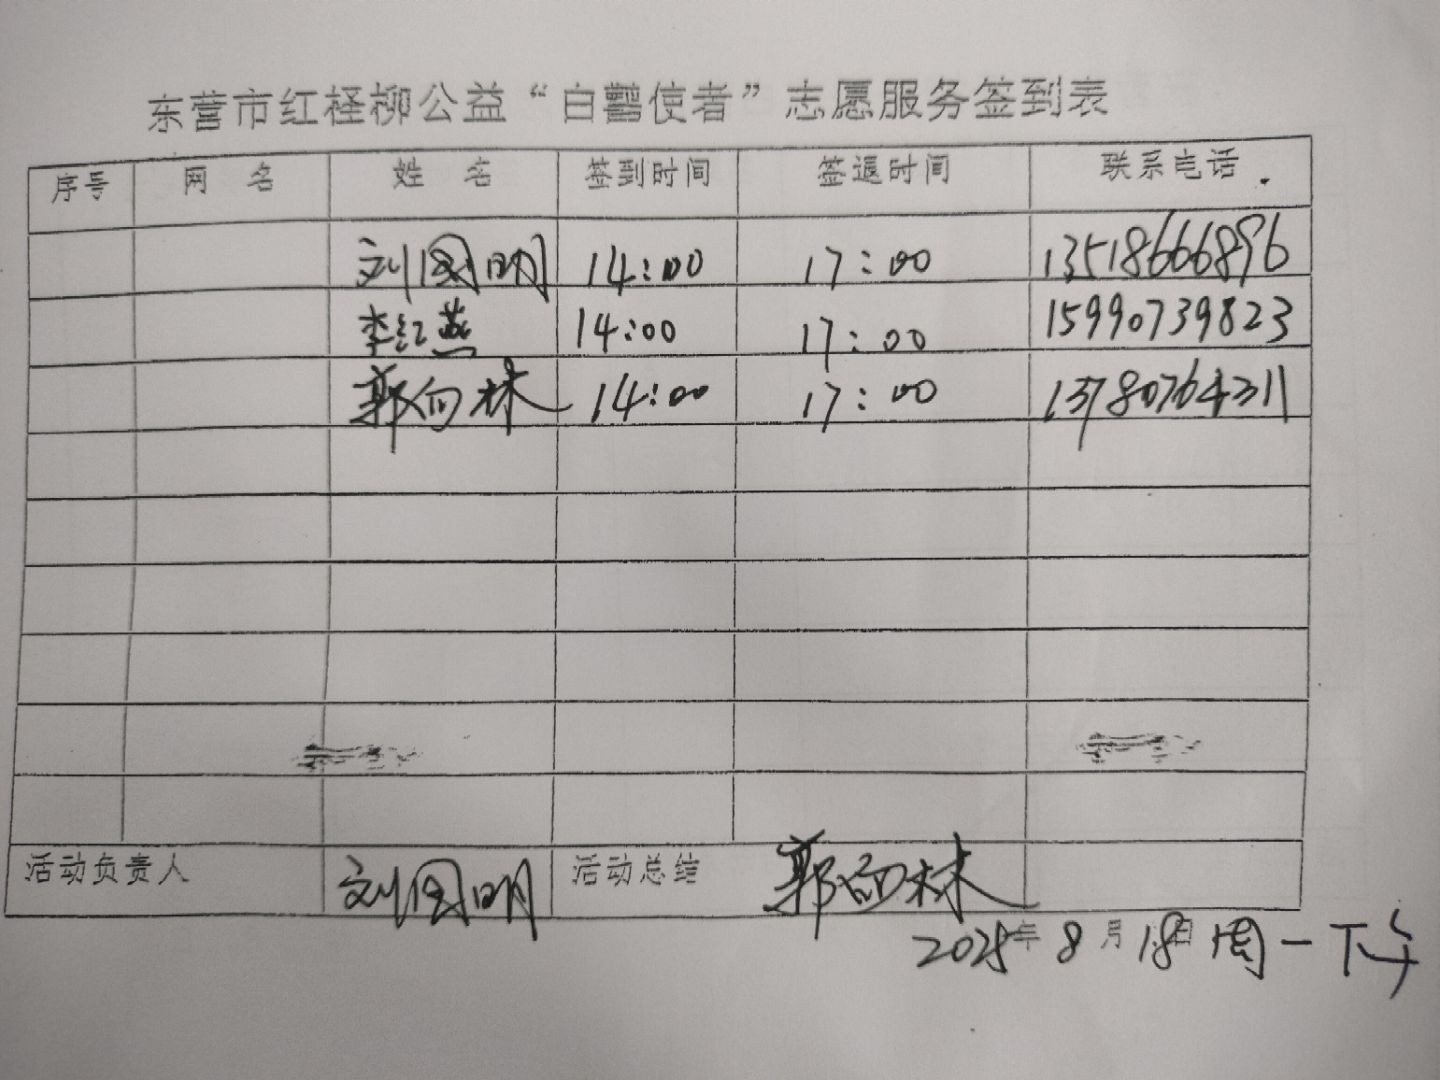 东营市红柽柳公益“白鹳使者”志愿服务签到表
序号 网 名 姓 名 签到时间 签退时间 联系电话
刘国明 14:00 17:00 13518666896
李红燕 14:00 17:00 15990739823
郭向林 14:00 17:00 13780764311
活动负责人 刘国明 活动总结 郭向林
2025年8月18日周一下午